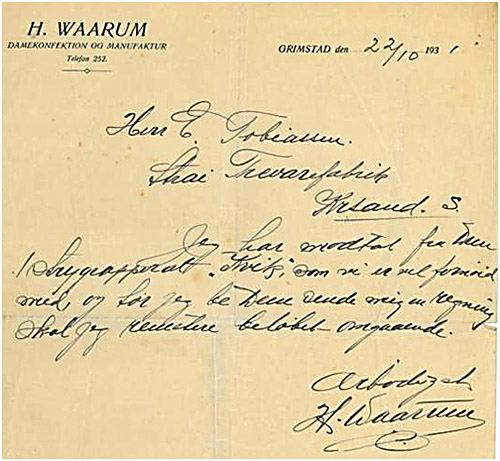 H. WAARUM
DAMEKONFEKTION OG MANUFAKTUR
Telefon 252.
GRIMSTAD den 22/10 1931.
Herr E. Tobiassen.
Strai Trevarefabrik
Krsand. S.
Jeg har modtat fra Dem
1 Strygeapperat "Kvik" som vi er vel fornøid
med, og tør jeg be Dem sende mig en regning
skal jeg remitere beløbet omgaaende.
Ærbødigst
H. Waarum